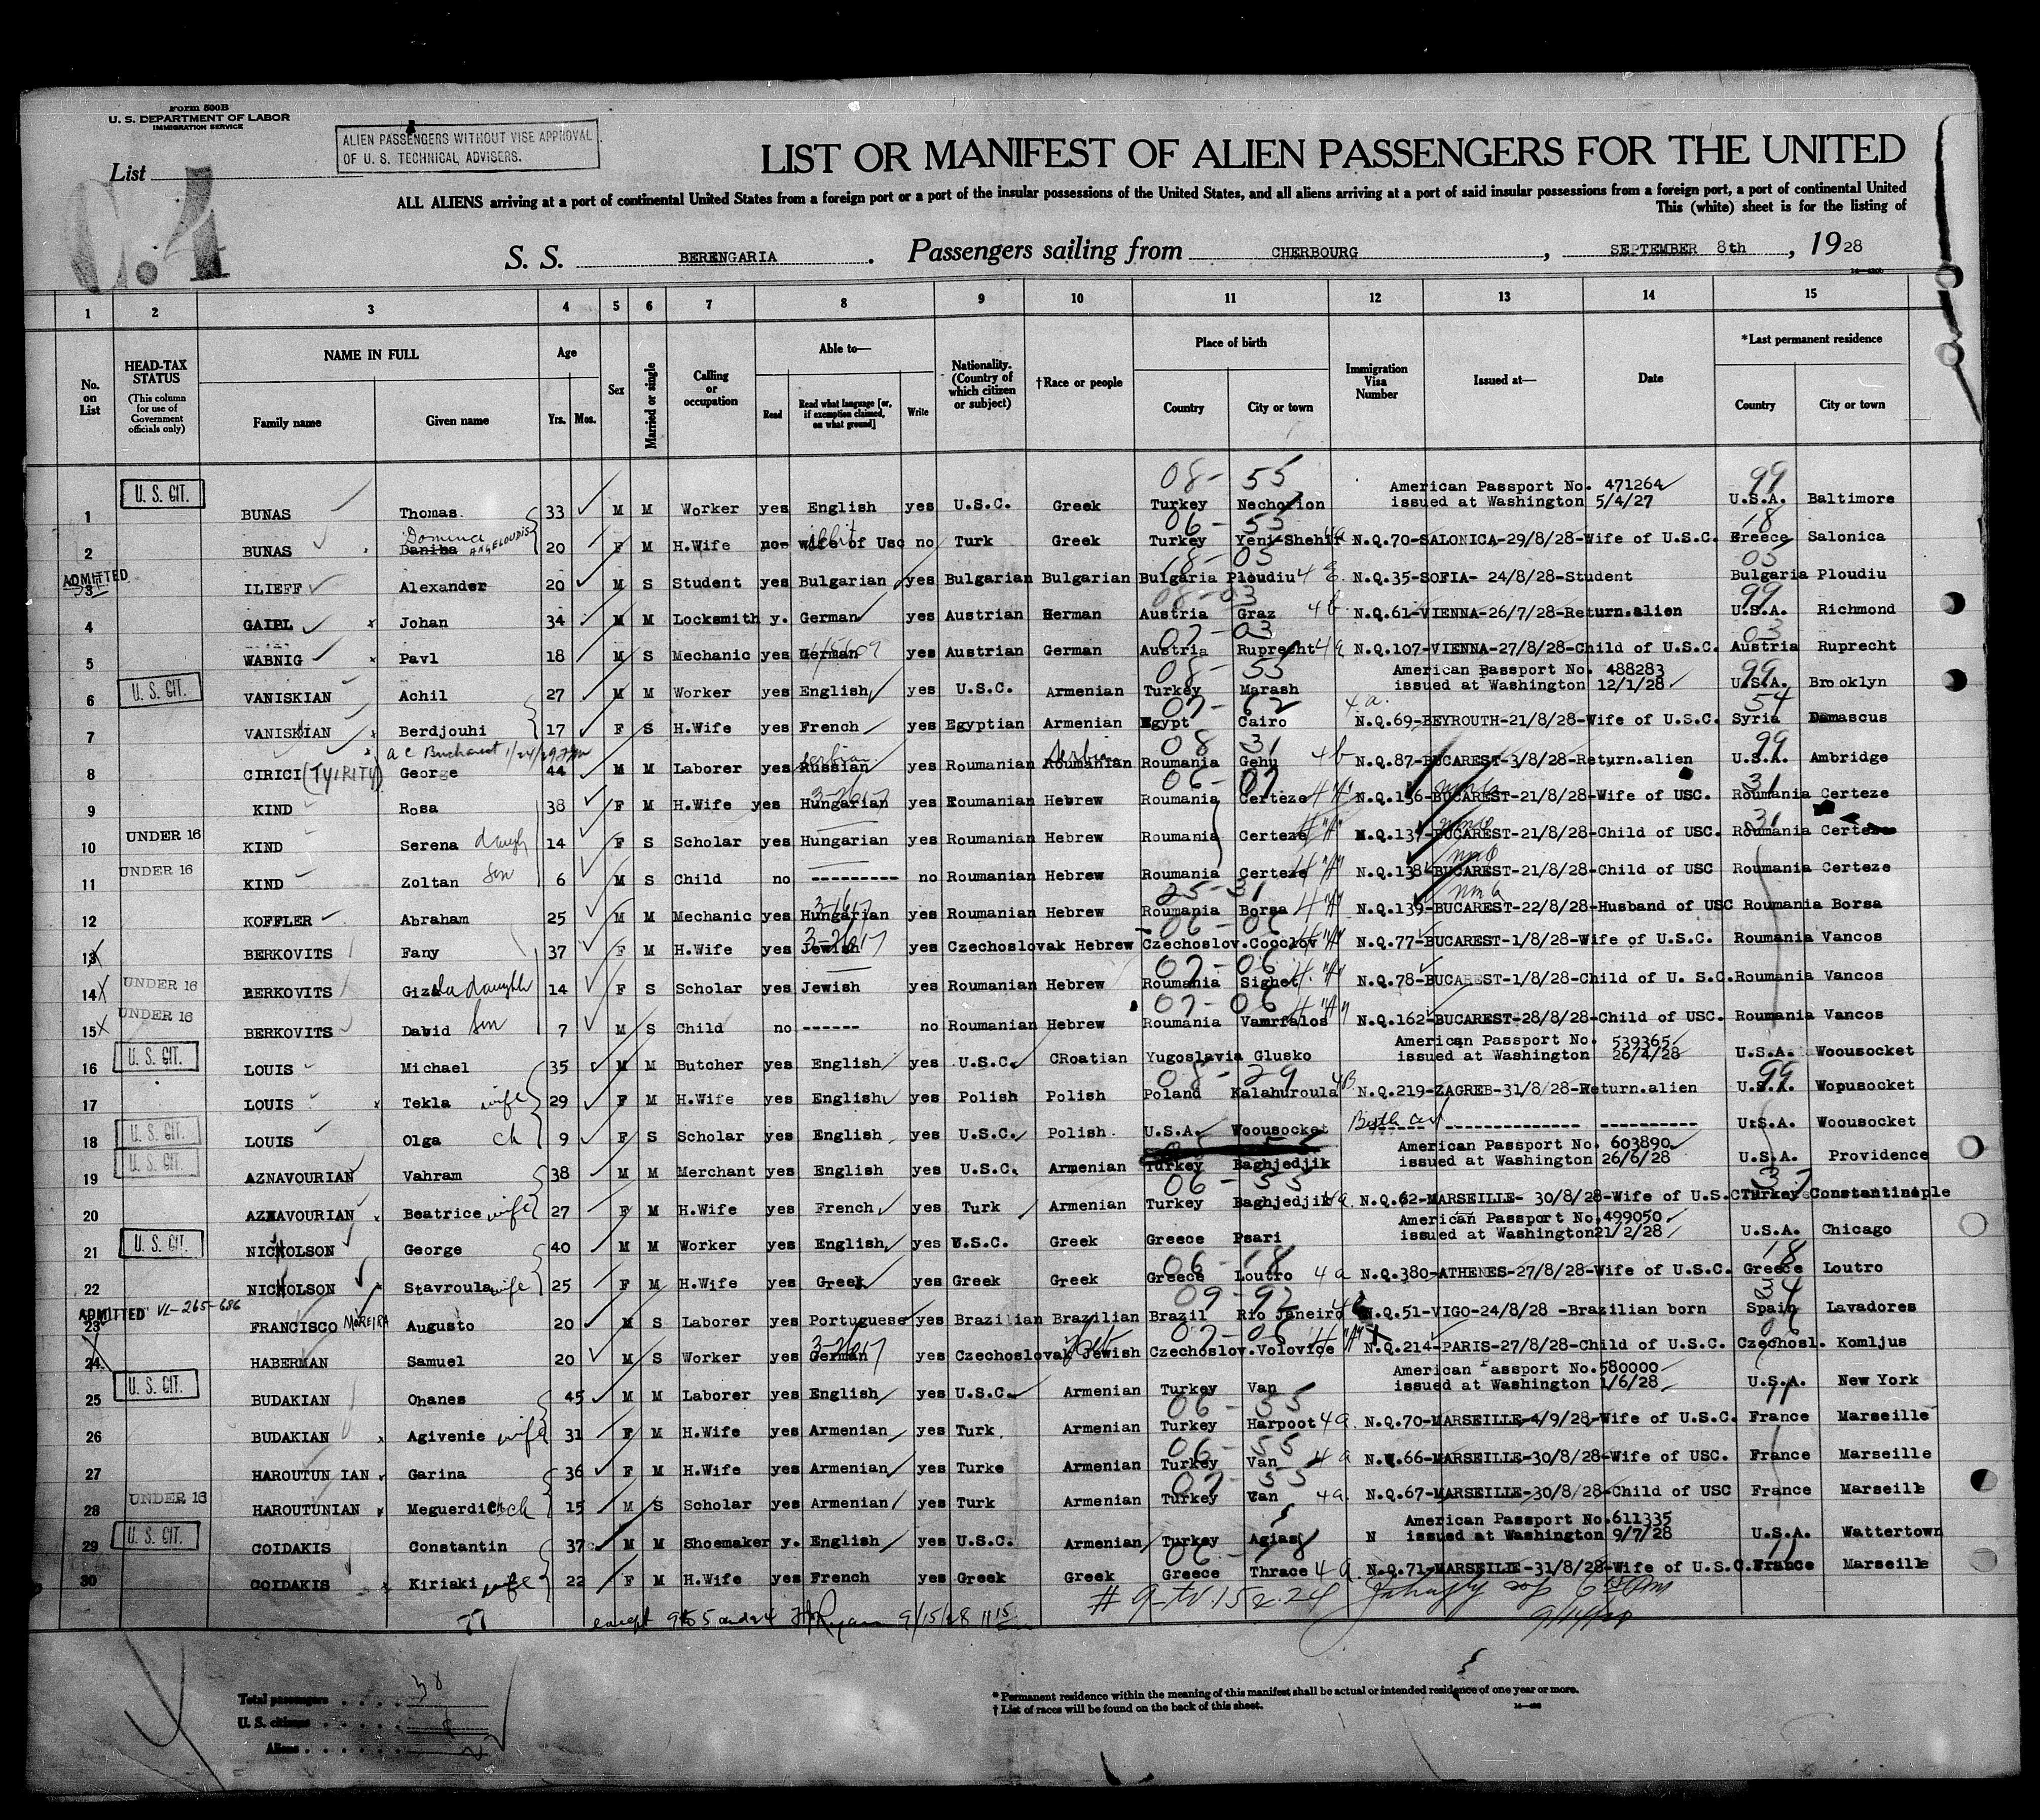 Form 500B
U. S. DEPARTMENT OF LABOR
IMMIGRATION SERVICE
ALIEN PASSENGERS WITHOUT VISE APPROVAL
OF U. S. TECHNICAL ADVISERS.
List
C.4
LIST OR MANIFEST OF ALIEN PASSENGERS FOR THE UNITED
ALL ALIENS arriving at a port of continental United States from a foreign port or a port of the insular possessions of the United States, and all aliens arriving at a port of said insular possessions from a foreign port, a port of continental United
This (white) sheet is for the listing of
S. S. BERENGARIA. Passengers sailing from CHERBOURG, SEPTEMBER 8th, 1928
1 2 3 4 5 6 7 8 9 10 11 12 13 14 15
No. on List
HEAD-TAX STATUS (This column for use of Government officials only)
NAME IN FULL Family name Given name
Age Yrs. Mos.
Sex
Married or single
Calling or occupation
Able to— Read Read what language [or, if exemption claimed, on what ground] Write
Nationality. (Country of which citizen or subject)
†Race or people
Place of birth Country City or town
Immigration Visa Number
Issued at—
Date
*Last permanent residence Country City or town
08-55 99
1 U. S. CIT. BUNAS Thomas 33 M M Worker yes English yes U.S.C. Greek Turkey Nechorion American Passport No. 471264 issued at Washington 5/4/27 U.S.A. Baltimore
Domina 06-55 18
2 BUNAS ANGELOUDIS 20 F M H.Wife no wife of Usc no Turk Greek Turkey Yeni-Shehir 4a N.Q.70-SALONICA-29/8/28-Wife of U.S.C. Greece Salonica
18-05 05
ADMITTED 3 ILIEFF Alexander 20 M S Student yes Bulgarian yes Bulgarian Bulgarian Bulgaria Ploudiu N.Q.35-SOFIA- 24/8/28-Student Bulgaria Ploudiu
08-03 99
4 GAIPL Johan 34 M M Locksmith y. German yes Austrian German Austria Graz 4b N.Q.61-VIENNA-26/7/28-Return.alien U.S.A. Richmond
07-03 03
5 WABNIG Pavl 18 M S Mechanic yes German yes Austrian German Austria Ruprecht 4a N.Q.107-VIENNA-27/8/28-Child of U.S.C. Austria Ruprecht
08-55 99
6 U. S. CIT. VANISKIAN Achil 27 M M Worker yes English yes U.S.C. Armenian Turkey Marash American Passport No. 488283 issued at Washington 12/1/28 U.S.A. Brooklyn
07-62 4a. 54
7 VANISKIAN Berdjouhi 17 F S H.Wife yes French yes Egyptian Armenian Egypt Cairo N.Q.69-BEYROUTH-21/8/28-Wife of U.S.C. Syria Damascus
Serbian 08 31 99
8 CIRICI (TYIRITY) George 44 M M Laborer yes Russian yes Roumanian Roumanian Roumania Gehu 4b N.Q.87-BUCAREST-3/8/28-Return.alien U.S.A. Ambridge
31
9 KIND Rosa 38 F M H.Wife yes Hungarian yes Roumanian Hebrew Roumania Certeze N.Q.136-BUCAREST-21/8/28-Wife of USC. Roumania Certeze
31
10 UNDER 16 KIND Serena 14 F S Scholar yes Hungarian yes Roumanian Hebrew Roumania Certeze N.Q.137-BUCAREST-21/8/28-Child of USC. Roumania Certeze
11 UNDER 16 KIND Zoltan Son 6 M S Child no ---------- no Roumanian Hebrew Roumania Certeze N.Q.138-BUCAREST-21/8/28-Child of USC Roumania Certeze
25-31
12 KOFFLER Abraham 25 M M Mechanic yes Hungarian yes Roumanian Hebrew Roumania Borsa N.Q.139-BUCAREST-22/8/28-Husband of USC Roumania Borsa
06-06
13 BERKOVITS Fany 37 F M H.Wife yes Jewish yes Czechoslovak Hebrew Czechoslov. N.Q.77-BUCAREST-1/8/28-Wife of U.S.C. Roumania Vancos
07-06
14 UNDER 16 BERKOVITS Gizela daughter 14 F S Scholar yes Jewish yes Roumanian Hebrew Roumania Sighet N.Q.78-BUCAREST-1/8/28-Child of U. S.C. Roumania Vancos
07-06
15 UNDER 16 BERKOVITS David Son 7 M S Child no ------ no Roumanian Hebrew Roumania Vamrfalos N.Q.162-BUCAREST-28/8/28-Child of USC. Roumania Vancos
16 U. S. CIT. LOUIS Michael 35 M M Butcher yes English yes U.S.C. CRoatian Yugoslavia Glusko American Passport No. 539365 issued at Washington 26/4/28 U.S.A. Woousocket
08-29 99
17 LOUIS Tekla wife 29 F M H.Wife yes English yes Polish Polish Poland Kalahuroula 4B N.Q.219-ZAGREB-31/8/28-Return.alien U.S.A. Wopusocket
18 U. S. CIT. LOUIS Olga ch 9 F S Scholar yes English yes U.S.C. Polish U.S.A. Woousocket Birth cert --------------- ---------- U.S.A. Woousocket
19 U. S. CIT. AZNAVOURIAN Vahram 38 M M Merchant yes English yes U.S.C. Armenian Turkey Baghjedjik American Passport No. 603890 issued at Washington 26/6/28 U.S.A. Providence
06-55 37
20 AZNAVOURIAN Beatrice wife 27 F M H.Wife yes French yes Turk Armenian Turkey Baghjedjik 4a. N.Q.62-MARSEILLE- 30/8/28-Wife of U.S.C Turkey Constantinople
21 U. S. CIT. NICHOLSON George 40 M M Worker yes English yes U.S.C. Greek Greece Psari American Passport No.499050 issued at Washington 21/2/28 U.S.A. Chicago
06-18 18
22 NICHOLSON Stavroula wife 25 F M H.Wife yes Greek yes Greek Greek Greece Loutro 4a N.Q.380-ATHENES-27/8/28-Wife of U.S.C. Greece Loutro
09-92 34
ADMITTED VL-265-686 23 FRANCISCO MOREIRA Augusto 20 M S Laborer yes Portuguese yes Brazilian Brazilian Brazil Rio Janeiro N.Q.51-VIGO-24/8/28 -Brazilian born Spain Lavadores
07-06 06
24 HABERMAN Samuel 20 M S Worker yes German yes Czechoslovak Jewish Czechoslov. Volovice N.Q.214-PARIS-27/8/28-Child of U.S.C. Czechosl. Komljus
25 U. S. CIT. BUDAKIAN Ohanes 45 M M Laborer yes English yes U.S.C. Armenian Turkey Van American Passport No.580000 issued at Washington 1/6/28 U.S.A. New York
06-55
26 BUDAKIAN Agivenie wife 31 F M H.Wife yes Armenian yes Turk Armenian Turkey Harpoot 4a. N.Q.70-MARSEILLE-4/9/28-Wife of U.S.C. France Marseille
06-55
27 HAROUTUN IAN Garina 36 F M H.Wife yes Armenian yes Turke Armenian Turkey Van 4a N.W.66-MARSEILLE-30/8/28-Wife of USC. France Marseille
07-55
28 UNDER 16 HAROUTUNIAN Meguerdich ch 15 M S Scholar yes Armenian yes Turk Armenian Turkey Van 4a. N.Q.67-MARSEILLE-30/8/28-Child of USC France Marseille
29 U. S. CIT. COIDAKIS Constantin 37 M M Shoemaker y. English yes U.S.C. Armenian Turkey Agias N American Passport No.611335 issued at Washington 9/7/28 U.S.A. Wattertown
06-18
30 COIDAKIS Kiriaki wife 22 F M H.Wife yes French yes Greek Greek Greece Thrace 4a. N.Q.71-MARSEILLE-31/8/28-Wife of U.S.C. France Marseille
except 9/15/28 11 15
Total passengers . . . . 30
U. S. citizens . . . . .
Aliens . . . . . .
* Permanent residence within the meaning of this manifest shall be actual or intended residence of one year or more.
† List of races will be found on the back of this sheet.